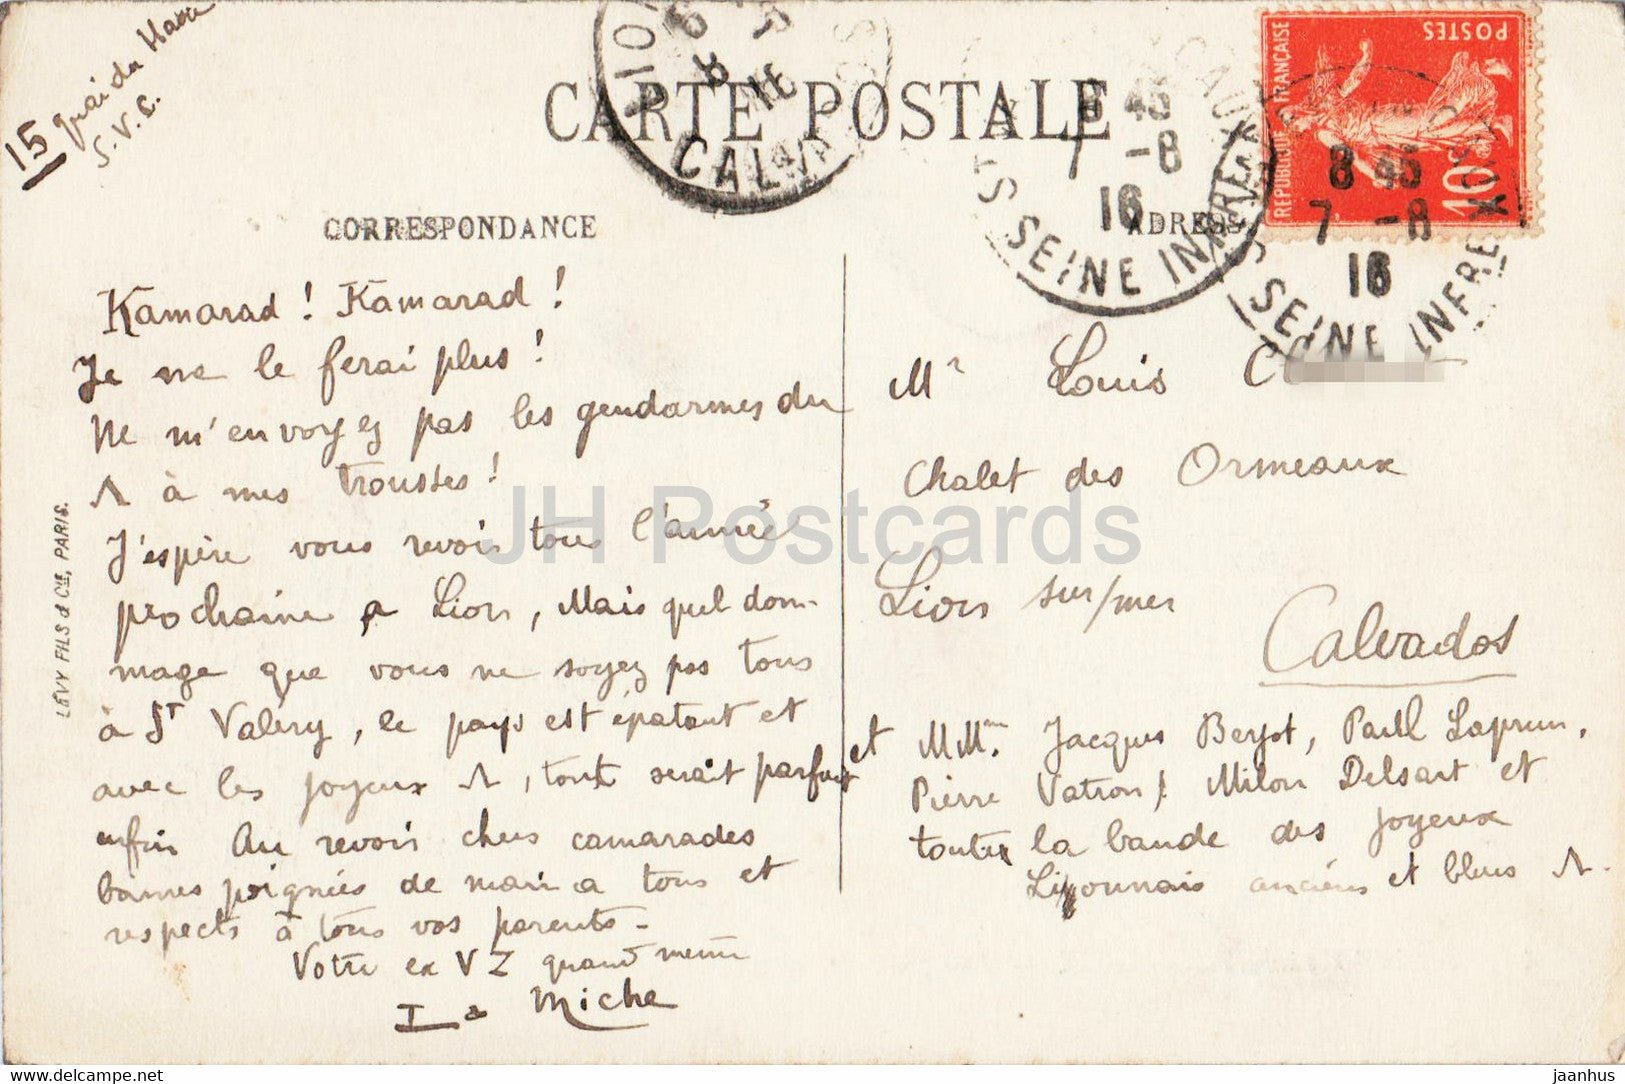 15 quai du Havre
S.V.C.
CARTE POSTALE
CORRESPONDANCE
ADRESSE
RÉPUBLIQUE FRANÇAISE
POSTES
10c
CALVADOS
8 45
7 -8
16
SEINE INFRE
8 45
7 -8
16
SEINE INFRE
Kamarad ! Kamarad !
Je ne le ferai plus !
Ne m'envoyez pas les gendarmes du
Λ à mes trousses !
J'espère vous revoir tous l'année
prochaine a Lion, Mais quel dom-
mage que vous ne soyez pas tous
à St Valéry, le pays est épatant et
avec les joyeux Λ, tout serait parfait
enfin Au revoir chers camarades
bonnes poignées de main a tous et
respects à tous vos parents -
Votre ex VZ quand même
Miche
Mr Louis C
Chalet des Ormeaux
Lion sur/mer
Calvados
et MMrs Jacques Berjot, Paul Laprun,
Pierre Vatron, Milon Delsart et
toute la bande des joyeux
Lionnais anciens et bleus Λ.
LÉVY FILS & CIE, PARIS.
JH Postcards
jaanhus